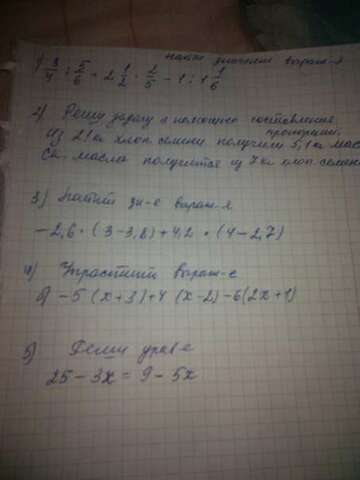 Найти значение выраж-я
1) 3/4 : 5/6 + 2 1/2 · 2/5 - 1 : 1 1/6
2) Решу задачу с помощью составления
пропорции.
Из 21 кг хлоп. семени получили 5,1 кг мас
Ск. масла получится из 7 кг хлоп. семени
3) Найти зн-е выраж-я
-2,6 · (3-3,8)+4,2 · (4-2,7)
4) Упростить выраж-е
-5 (x+3)+4 (x-2)-6(2x+1)
5) Реши урав-е
25 - 3x = 9 - 5x